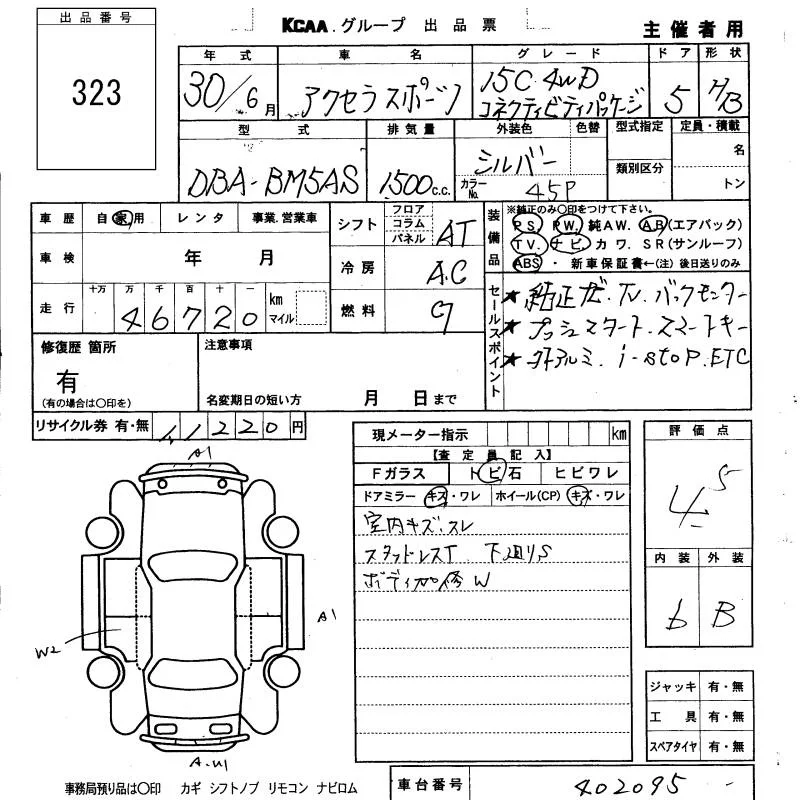 出品番号
323
KCAA.グループ 出品票
主催者用
年式 車名 グレード ドア 形状
30/6月 アクセラスポーツ 15C 4WD コネクティビティパッケージ 5 HB
型式 排気量 外装色 色替 型式指定 定員・積載
DBA-BM5AS 1500c.c. シルバー 名
カラーNo. 45P 類別区分 トン
車歴 自家用 レンタ 事業.営業車
シフト フロア コラム パネル AT
車検 年 月
冷房 A.C
走行 十万 万 千 百 十 一 km マイル
46720
燃料 G
装備品 ※純正のみ○印をつけて下さい。
PS PW. 純AW. AB(エアバック)
TV. ナビ. カワ. SR(サンルーフ)
ABS ・ 新車保証書←(注) 後日送りのみ
セールスポイント
★純正ナビ.TV.バックモニター
★プッシュスタート.スマートキー
★外アルミ.i-stop.ETC
修復歴 箇所
有
(有の場合は○印を)
注意事項
名変期日の短い方 月 日まで
リサイクル券 有・無 11220円
現メーター指示 km
【査定員記入】
Fガラス トビ石 ヒビワレ
ドアミラー キズ・ワレ ホイール(CP) キズ・ワレ
室内キズ.スレ
スタッドレスT 下廻りS
ボディ加修W
評価点
4.5
内装 外装
b B
A1
A1
W2
A.U1
ジャッキ 有・無
工具 有・無
スペアタイヤ 有・無
事務局預り品は○印 カギ シフトノブ リモコン ナビロム
車台番号 402095